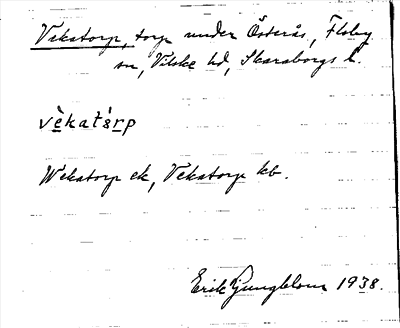 Vekatorp, torp under Österås, Floby
sn, Vilske hd, Skaraborgs l.
vèkatårp
Wekatorp ek, Vekatorp kb.
Erik Ljungblom 1938.